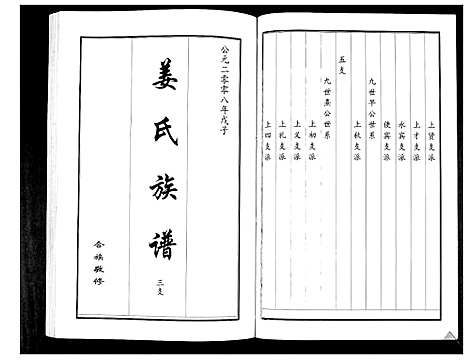 上贤支派
上才支派
永宾支派
俊宾支派
九世早公世系
上秋支派
五支
九世燕公世系
上初支派
上义支派
上礼支派
上四支派
公元二零零八年戊子
姜氏族谱
三支
合族敬修